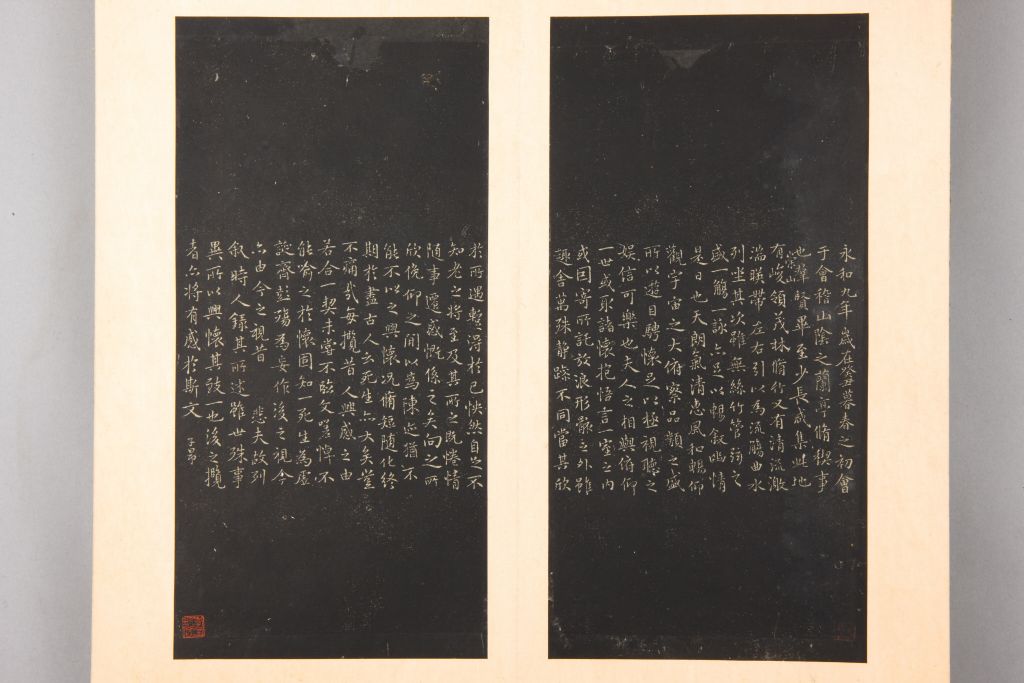 永和九年歲在癸丑暮春之初會
于會稽山陰之蘭亭脩稧事
也羣賢畢至少長咸集此地
有崇山峻領茂林脩竹又有清流激
湍暎帶左右引以為流觴曲水
列坐其次雖無絲竹管弦之
盛一觴一詠亦足以暢敘幽情
是日也天朗氣清惠風和暢仰
觀宇宙之大俯察品類之盛
所以遊目騁懷足以極視聽之
娛信可樂也夫人之相與俯仰
一世或取諸懷抱悟言一室之內
或因寄所託放浪形骸之外雖
趣舍萬殊静躁不同當其欣
於所遇暫得於己怏然自足不
知老之將至及其所之既惓情
隨事遷感慨係之矣向之所
欣俛仰之間以為陳迹猶不
能不以之興懷況脩短隨化終
期於盡古人云死生亦大矣豈
不痛哉每攬昔人興感之由
若合一契未嘗不臨文嗟悼不
能喻之於懷固知一死生為虛
誕齊彭殤為妄作後之視今
亦由今之視昔 悲夫故列
敘時人錄其所述雖世殊事
異所以興懷其致一也後之攬
者亦將有感於斯文 子昂